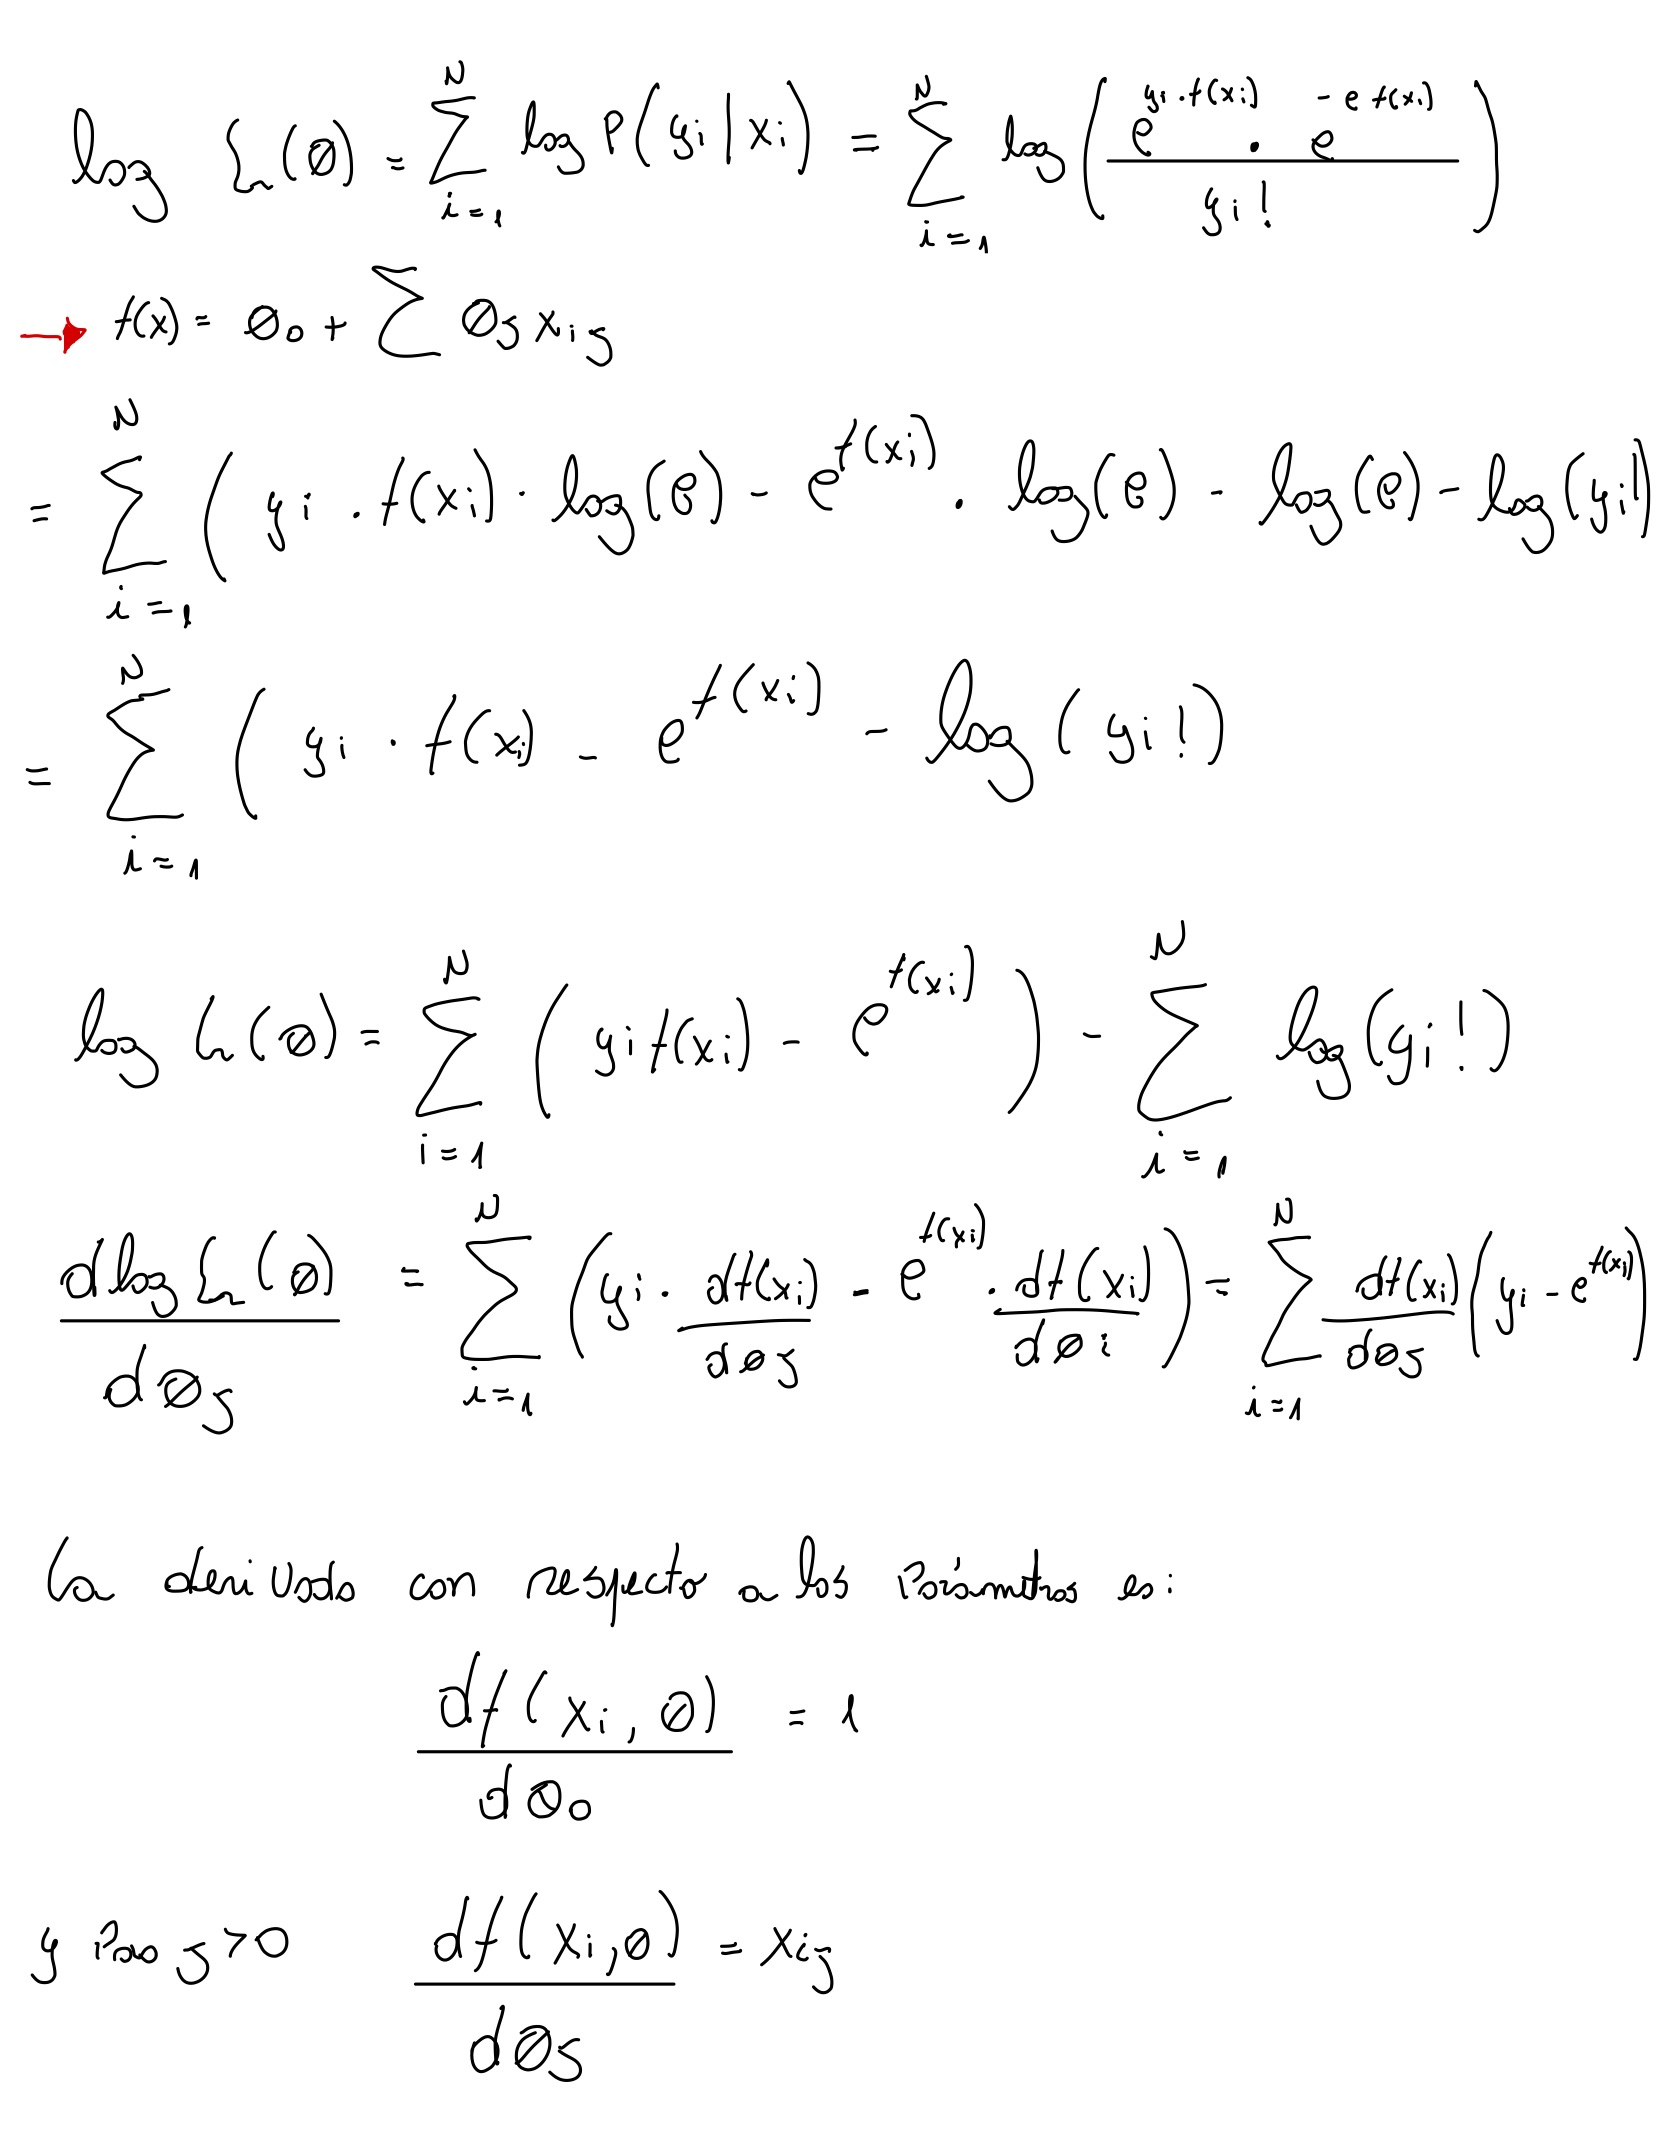 log L(θ) = Σ_{i=1}^{N} log P(yi | xi) = Σ_{i=1}^{N} log ( e^{yi·f(xi)} · e^{-e f(xi)} / yi! )
→ f(x) = θ₀ + Σ θj xij
= Σ_{i=1}^{N} ( yi · f(xi) · log(e) - e^{f(xi)} · log(e) - log(e) - log(yi!)
= Σ_{i=1}^{N} ( yi · f(xi) - e^{f(xi)} - log(yi!)
log L(θ) = Σ_{i=1}^{N} ( yi f(xi) - e^{f(xi)} ) - Σ_{i=1}^{N} log(yi!)
d log L(θ) / dθj = Σ_{i=1}^{N} ( yi · df(xi)/dθj - e^{f(xi)} · df(xi)/dθi ) = Σ_{i=1}^{N} df(xi)/dθj ( yi - e^{f(xi)} )
La derivada con respecto a los Parámetros es:
df(xi, θ) / dθ₀ = 1
y Para j>0 df(xi,θ) / dθj = xij